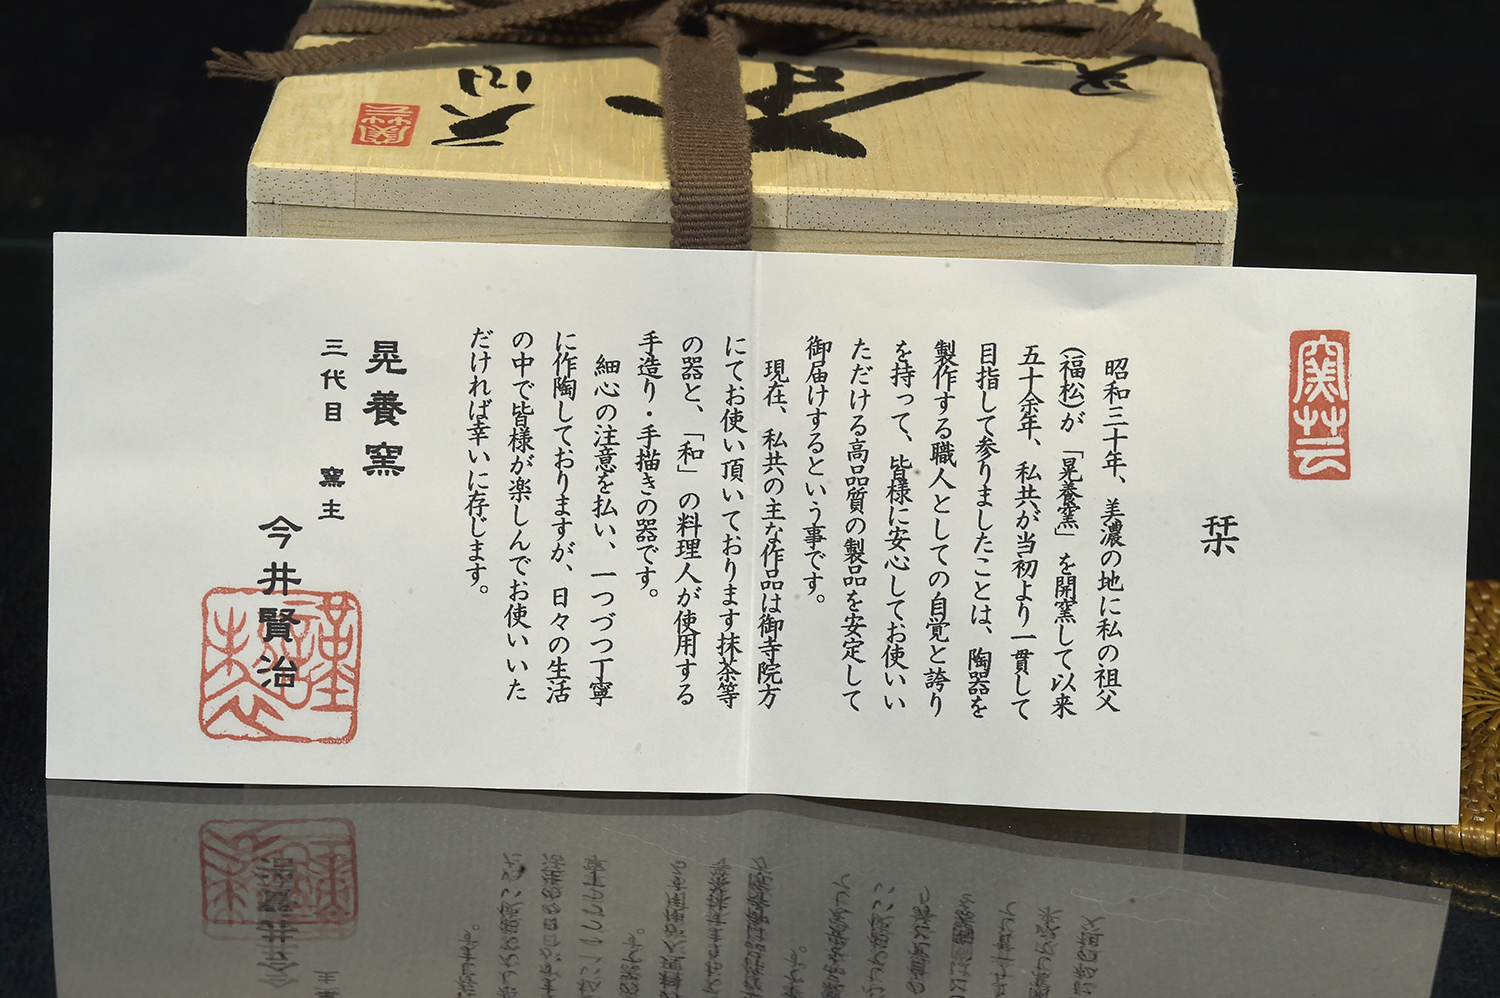 窯芸
栞
昭和三十年、美濃の地に私の祖父
(福松)が「晃養窯」を開窯して以来
五十余年、私共が当初より一貫して
目指して参りましたことは、陶器を
製作する職人としての自覚と誇り
を持って、皆様に安心してお使いい
ただける高品質の製品を安定して
御届けするという事です。
現在、私共の主な作品は御寺院方
にてお使い頂いております抹茶等
の器と、「和」の料理人が使用する
手造り・手描きの器です。
細心の注意を払い、一つづつ丁寧
に作陶しておりますが、日々の生活
の中で皆様が楽しんでお使いいた
だければ幸いに存じます。
晃養窯
三代目 窯主
今井賢治